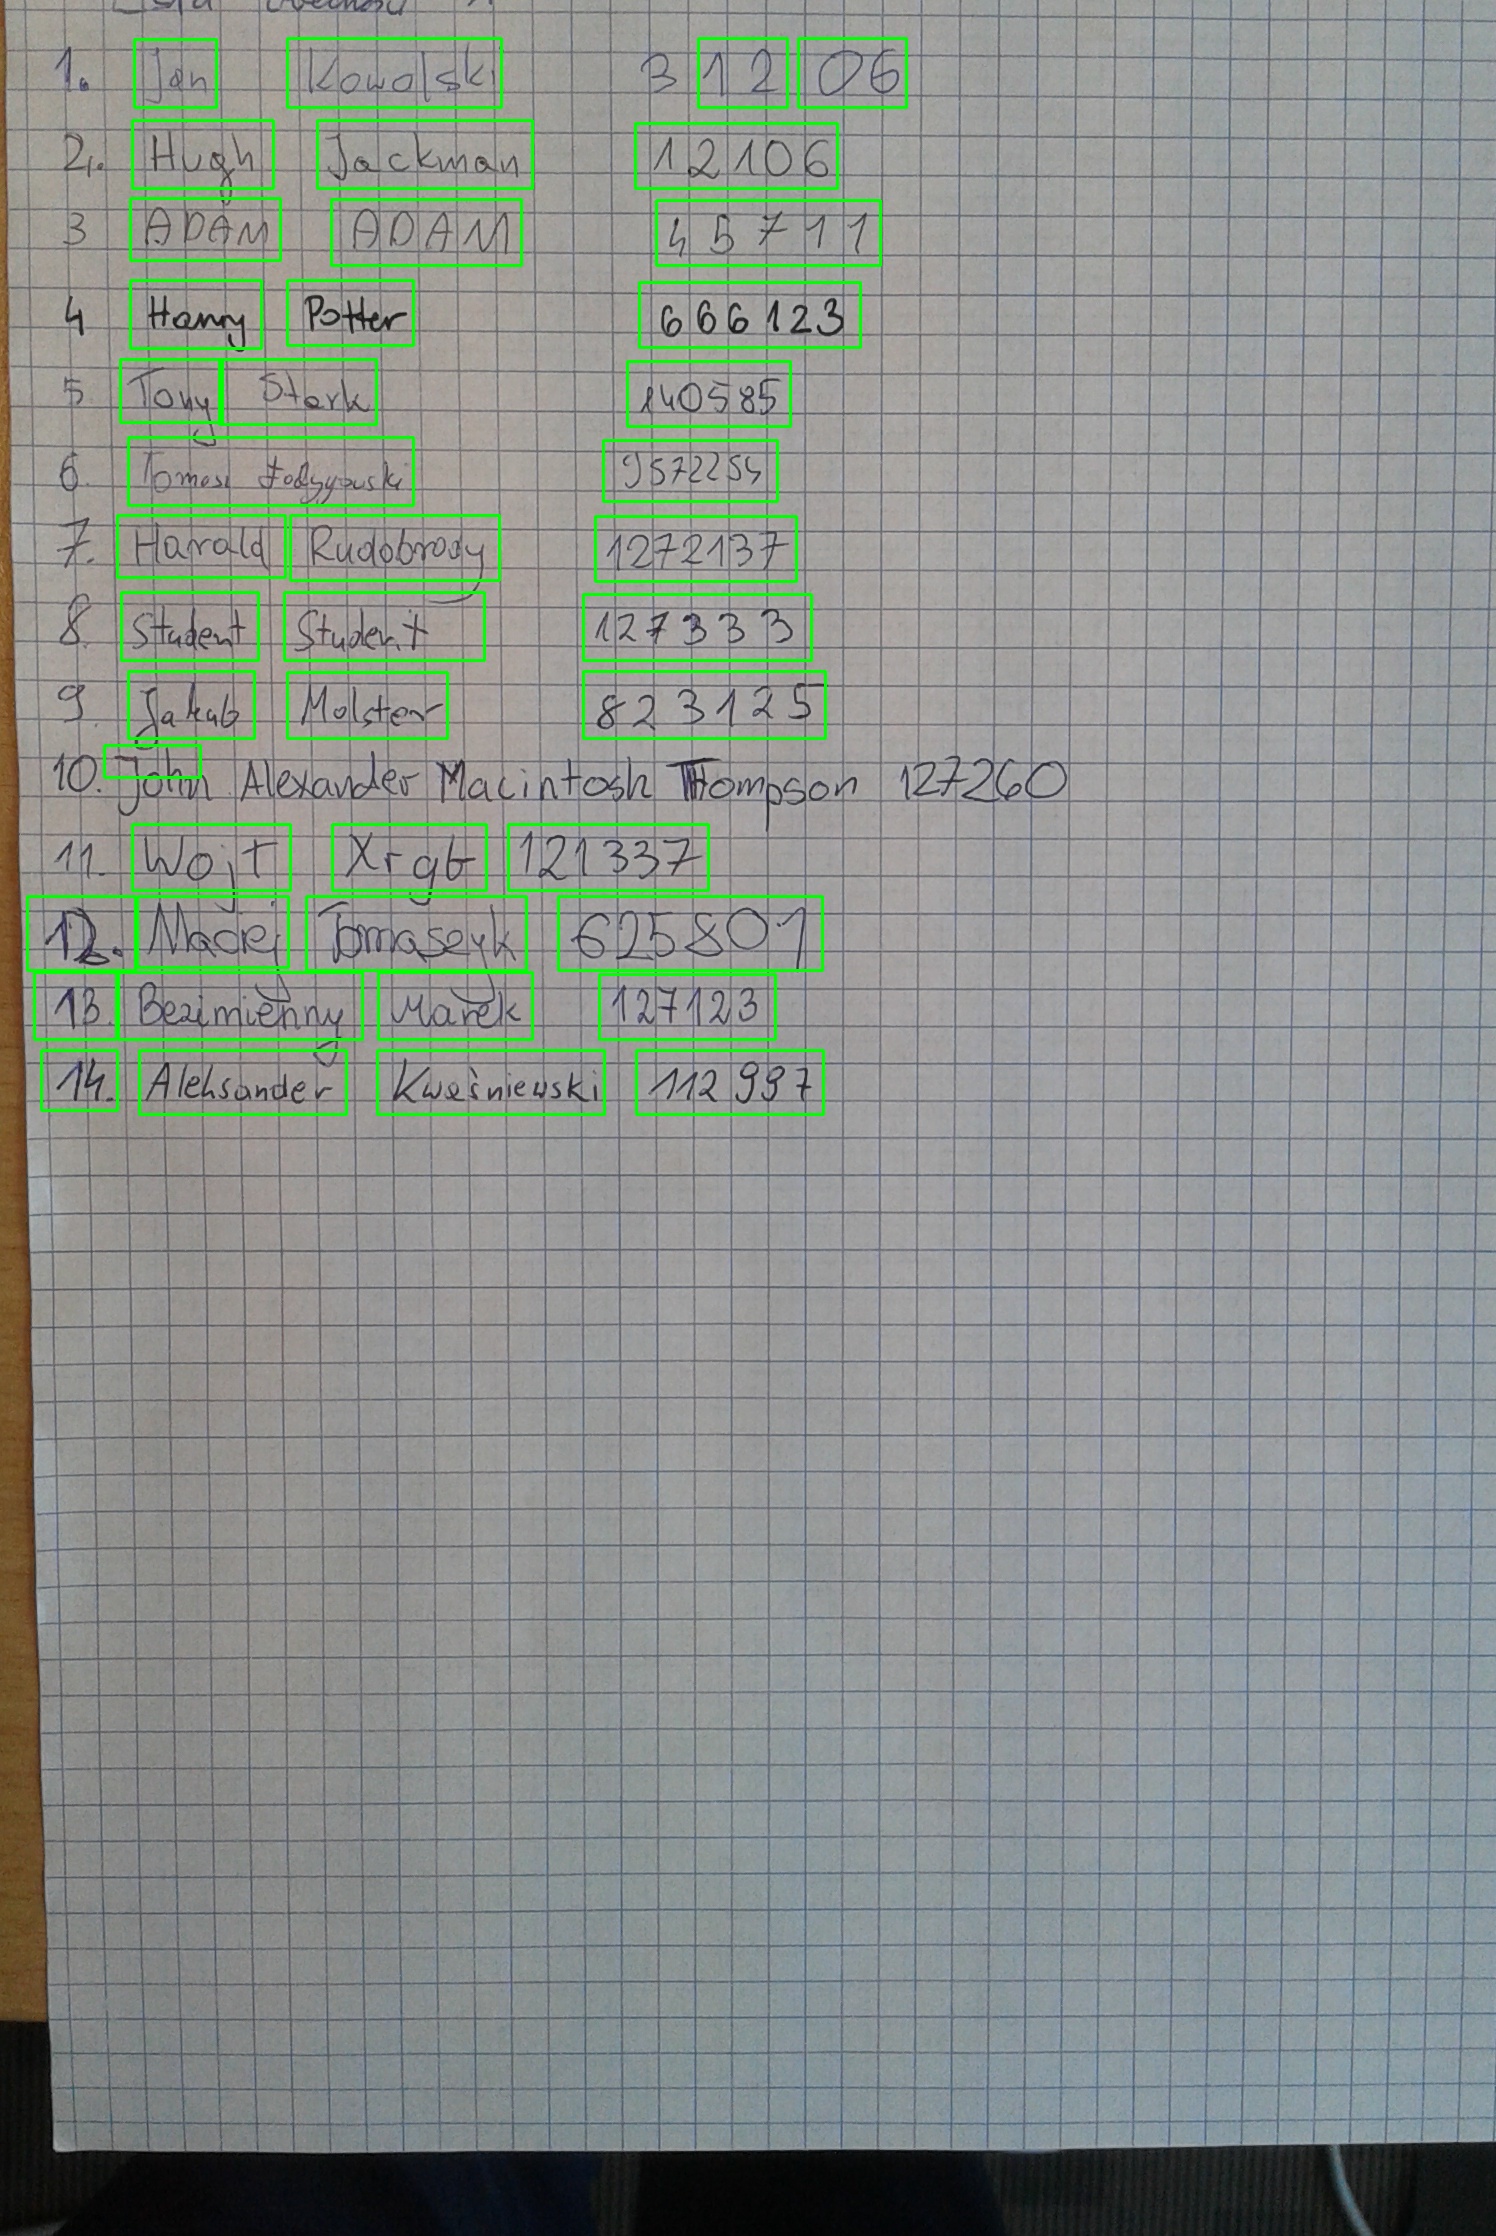 1. Jan Kowalski 3 12 06
2. Hugh Jackman 12106
3 ADAM ADAM 45711
4 Harry Potter 666123
5 Tony Stark 140585
6. Tomasz 9572254
7. Harald Rudobrody 1272137
8. Student Student 127333
9. Jakub Molster 823125
10. John Alexander Macintosh Thompson 127260
11. Wojt Xrgb 121337
12. Maciej Tomaszyk 625801
13. Bezimienny Marek 127123
14. Aleksander Kwaśniewski 112997